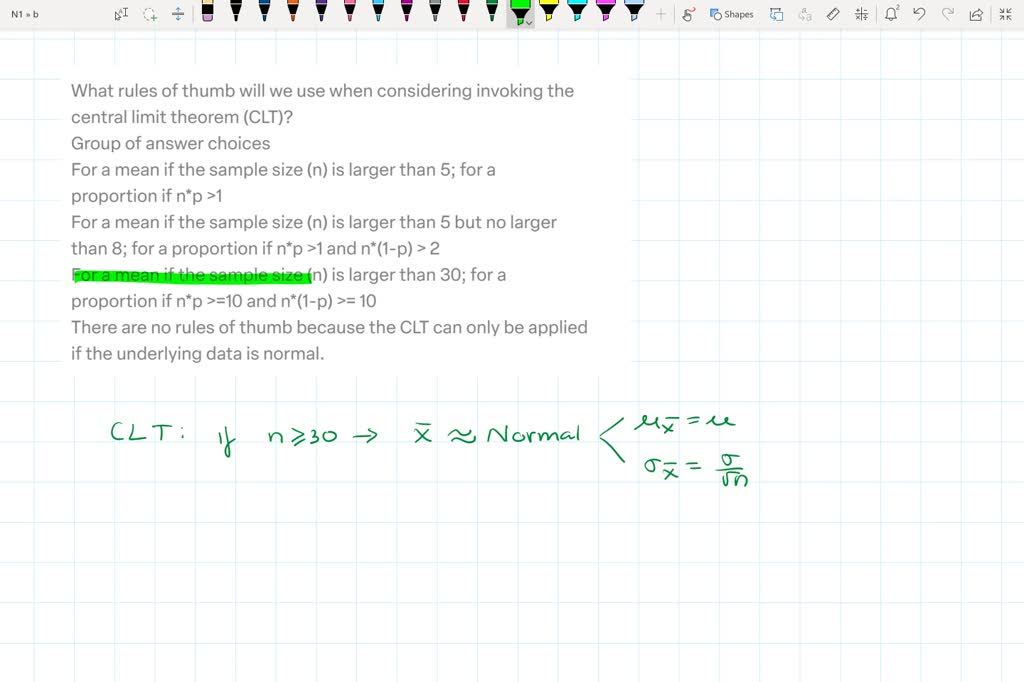 N1 » b
Shapes
What rules of thumb will we use when considering invoking the
central limit theorem (CLT)?
Group of answer choices
For a mean if the sample size (n) is larger than 5; for a
proportion if n*p >1
For a mean if the sample size (n) is larger than 5 but no larger
than 8; for a proportion if n*p >1 and n*(1-p) > 2
For a mean if the sample size (n) is larger than 30; for a
proportion if n*p >=10 and n*(1-p) >= 10
There are no rules of thumb because the CLT can only be applied
if the underlying data is normal.
CLT: if n≥30 → x̄ ≈ Normal < μx̄ = μ
σx̄ = σ/√n